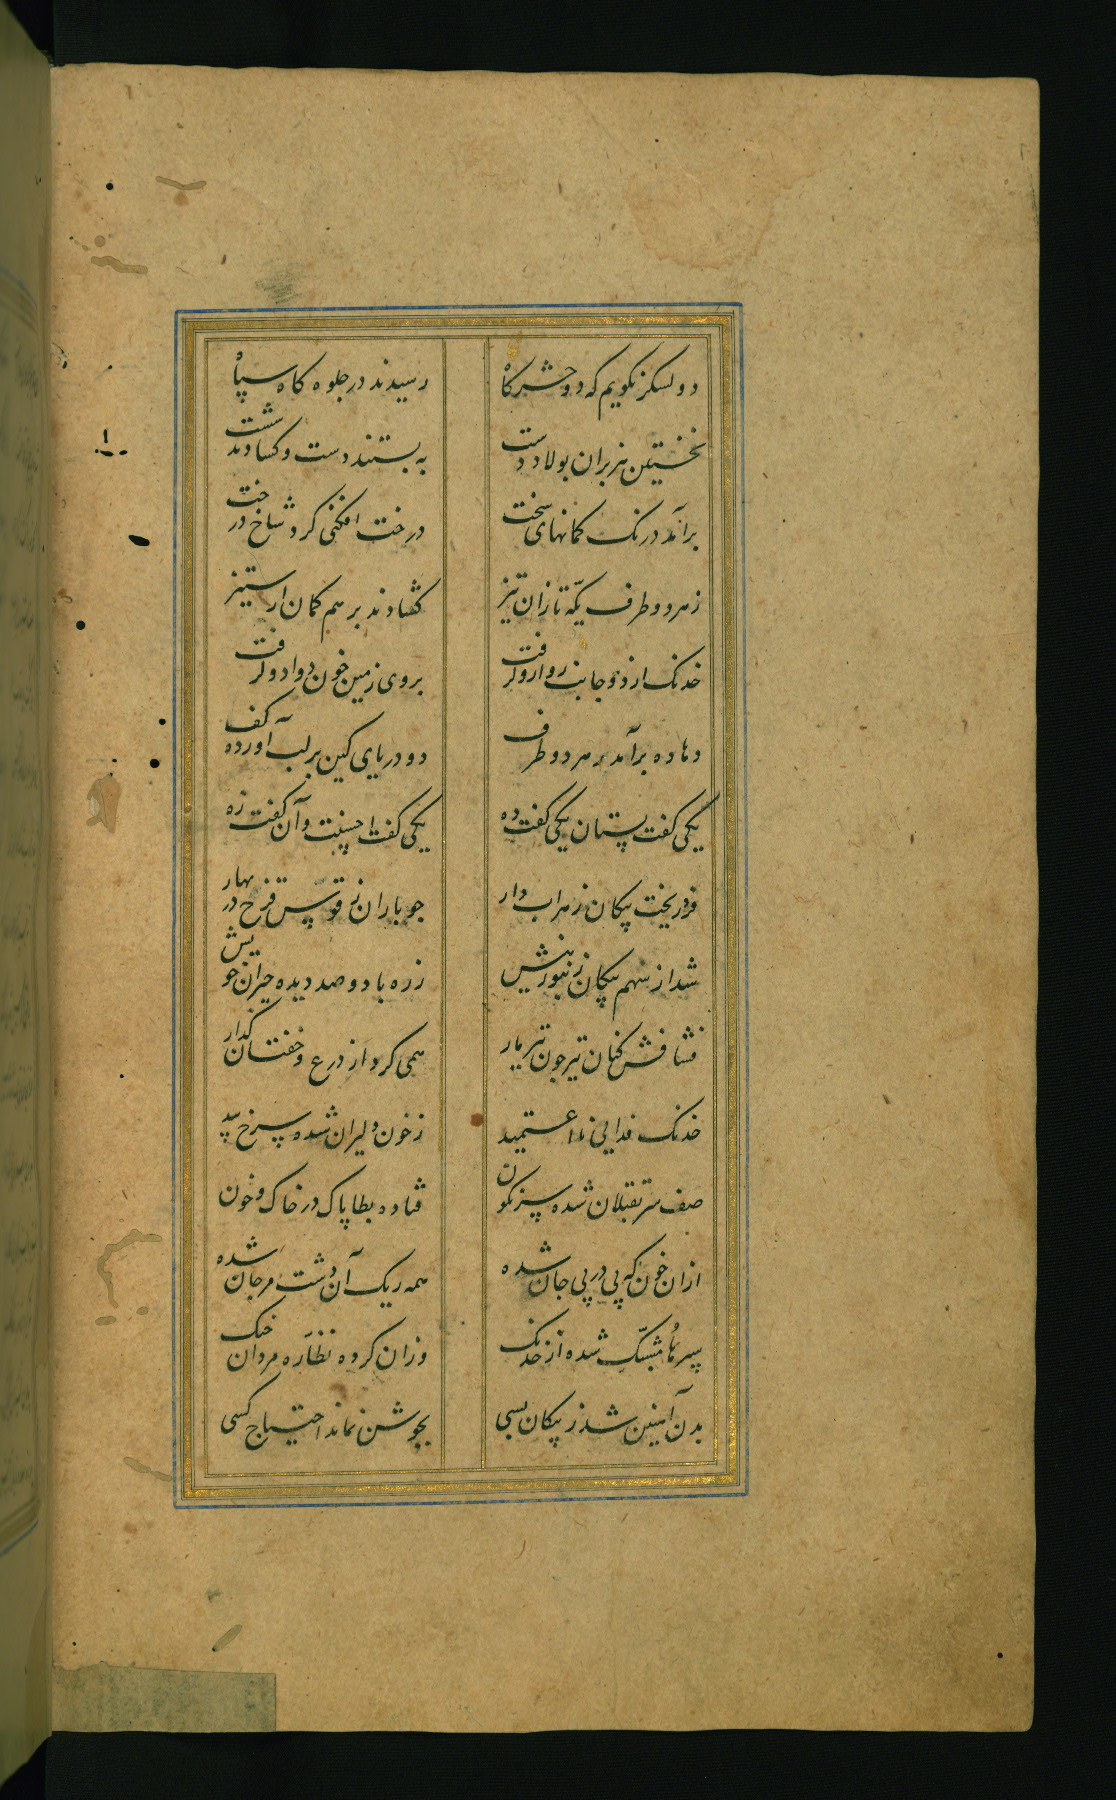 دو لسکر نکویم که دو حشرکاه رسیدند در جلوه کاه سپاه
نخستین هزبران بولاد دست به بستند دست و کسادند شست
برآمد درنک کمانهای سخت درخت افکنی کرد شاخ درخت
زهر دو طرف یکّه تازان تیز کشادند برهم کمان از ستیز
خدنک از دو جانب روارو کرفت بروی زمین خون دوادو کرفت
دهاده برآمد ز هر دو طرف دو دریای کین بر لب آورده کف
یکی کفت بستان یکی کفت ده یکی کفت احسنت وآن کفت زه
فرو ریخت پیکان زهراب دار جو باران ز قوس قزح در بهار
شد از سهم پیکان زنبور نیش زره با دو صد دیده حیران خویش
فشافش کنان تیر جون تیر مار همی کرد از درع و خفتان کذار
خدنک فدایی زخون دلیران شده سرخ
صف شده سرنکون فتاده بطاپاک در خاک و خون
ازان خون که پی در پی جان شده همه ریک آن دشت مرجان شده
سپرها مشبّک شده از خدنک وزان کرده نظّاره مردان جنک
بدن آهنین شد ز پیکان بسی بجوشن نماند احتیاج کسی